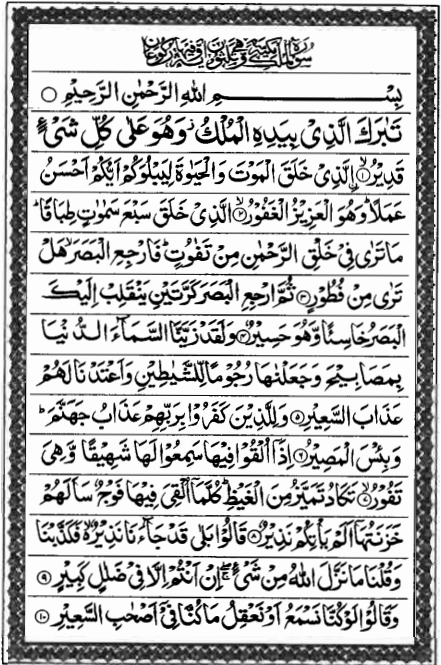 سُوْرَةُ الْمُلْكِ مَكِّيَّةٌ وَّهِیَ ثَلٰثُوْنَ اٰيَةً وَّفِيْهَا رُكُوْعَانِ
بِسْــــــمِ اللّٰهِ الرَّحْمٰنِ الرَّحِيْمِ ○
تَبٰرَكَ الَّذِىْ بِيَدِهِ الْمُلْكُ ز وَهُوَ عَلٰى كُلِّ شَىْءٍ
قَدِيْرُ ۙ‏﴿۱﴾ اۨلَّذِىْ خَلَقَ الْمَوْتَ وَالْحَيٰوةَ لِيَبْلُوَكُمْ اَيُّكُمْ اَحْسَنُ
عَمَلًا ؕ وَهُوَ الْعَزِيْزُ الْغَفُوْرُ ۙ‏﴿۲﴾ الَّذِىْ خَلَقَ سَبْعَ سَمٰوٰتٍ طِبَاقًا ؕ
مَا تَرٰى فِىْ خَلْقِ الرَّحْمٰنِ مِنْ تَفٰوُتٍ ؕ فَارْجِعِ الْبَصَرَ ۙ هَلْ
تَرٰى مِنْ فُطُوْرٍ‏﴿۳﴾ ثُمَّ ارْجِعِ الْبَصَرَ كَرَّتَيْنِ يَنْقَلِبْ اِلَيْكَ
الْبَصَرُ خَاسِئًا وَّهُوَ حَسِيْرٌ‏﴿۴﴾ وَلَقَدْ زَيَّنَّا السَّمَآءَ الدُّنْيَا
بِمَصَابِيْحَ وَجَعَلْنٰهَا رُجُوْمًا لِّلشَّيٰطِيْنِ وَاَعْتَدْنَا لَهُمْ
عَذَابَ السَّعِيْرِ‏﴿۵﴾ وَلِلَّذِيْنَ كَفَرُوْا بِرَبِّهِمْ عَذَابُ جَهَنَّمَ ؕ
وَبِئْسَ الْمَصِيْرُ‏﴿۶﴾ اِذَاۤ اُلْقُوْا فِيْهَا سَمِعُوْا لَهَا شَهِيْقًا وَّهِىَ
تَفُوْرُ ۙ‏﴿۷﴾ تَكَادُ تَمَيَّزُ مِنَ الْغَيْظِ ؕ كُلَّمَاۤ اُلْقِىَ فِيْهَا فَوْجٌ سَاَلَهُمْ
خَزَنَتُهَاۤ اَلَمْ يَاْتِكُمْ نَذِيْرٌ‏﴿۸﴾ قَالُوْا بَلٰى قَدْ جَآءَنَا نَذِيْرٌ ۙ فَكَذَّبْنَا
وَقُلْنَا مَا نَزَّلَ اللّٰهُ مِنْ شَىْءٍ ۖۚ اِنْ اَنْتُمْ اِلَّا فِىْ ضَلٰلٍ كَبِيْرٍ‏﴿۹﴾
وَقَالُوْا لَوْ كُنَّا نَسْمَعُ اَوْ نَعْقِلُ مَا كُنَّا فِىْۤ اَصْحٰبِ السَّعِيْرِ‏﴿۱۰﴾